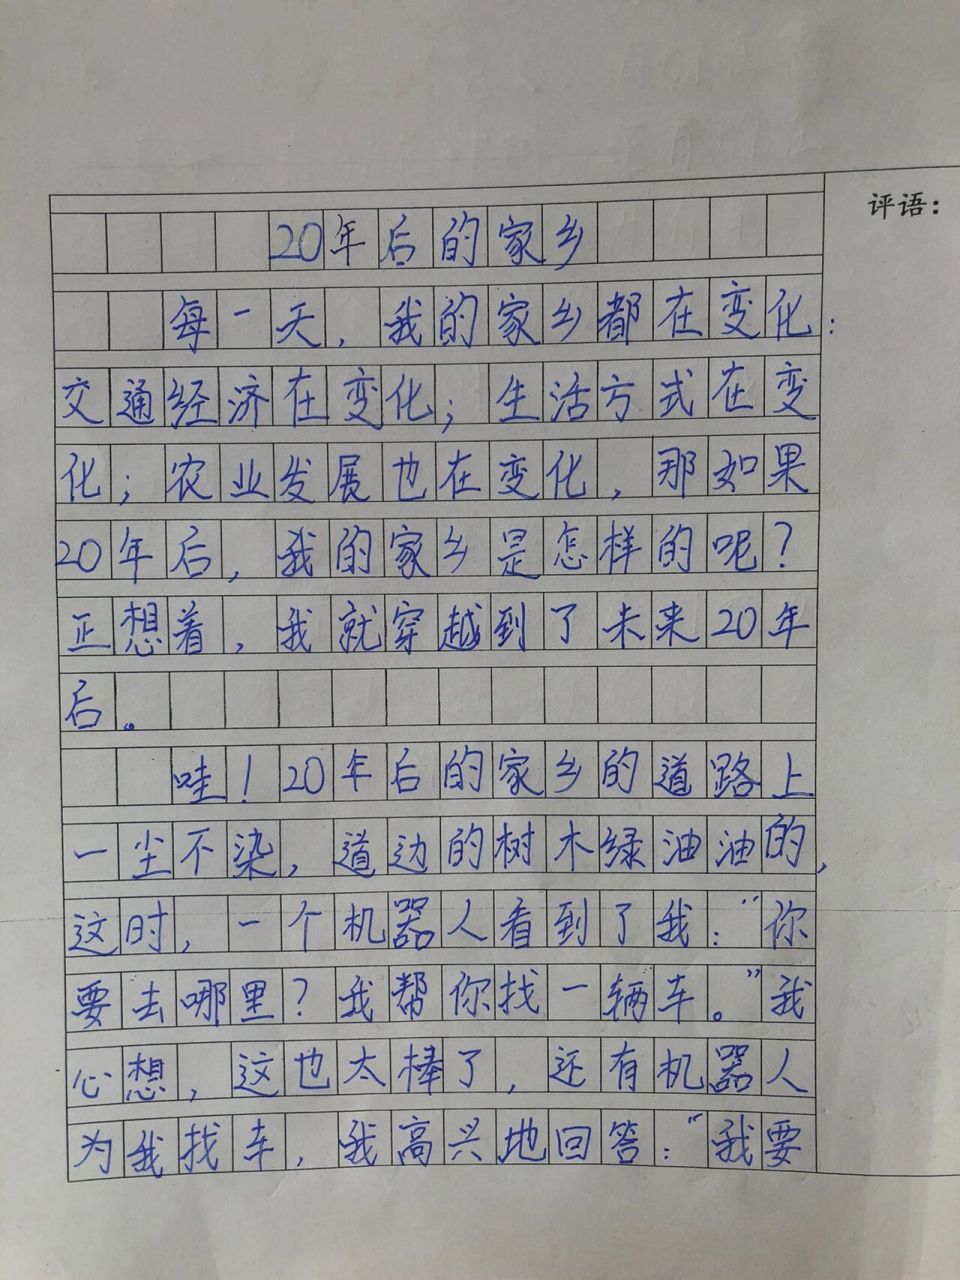 评语:
20年后的家乡
每一天,我的家乡都在变化:
交通经济在变化;生活方式在变
化;农业发展也在变化,那如果
20年后,我的家乡是怎样的呢?
正想着,我就穿越到了未来20年
后。
哇!20年后的家乡的道路上
一尘不染,道边的树木绿油油的,
这时,一个机器人看到了我:“你
要去哪里?我帮你找一辆车。”我
心想,这也太棒了,还有机器人
为我找车,我高兴地回答:“我要